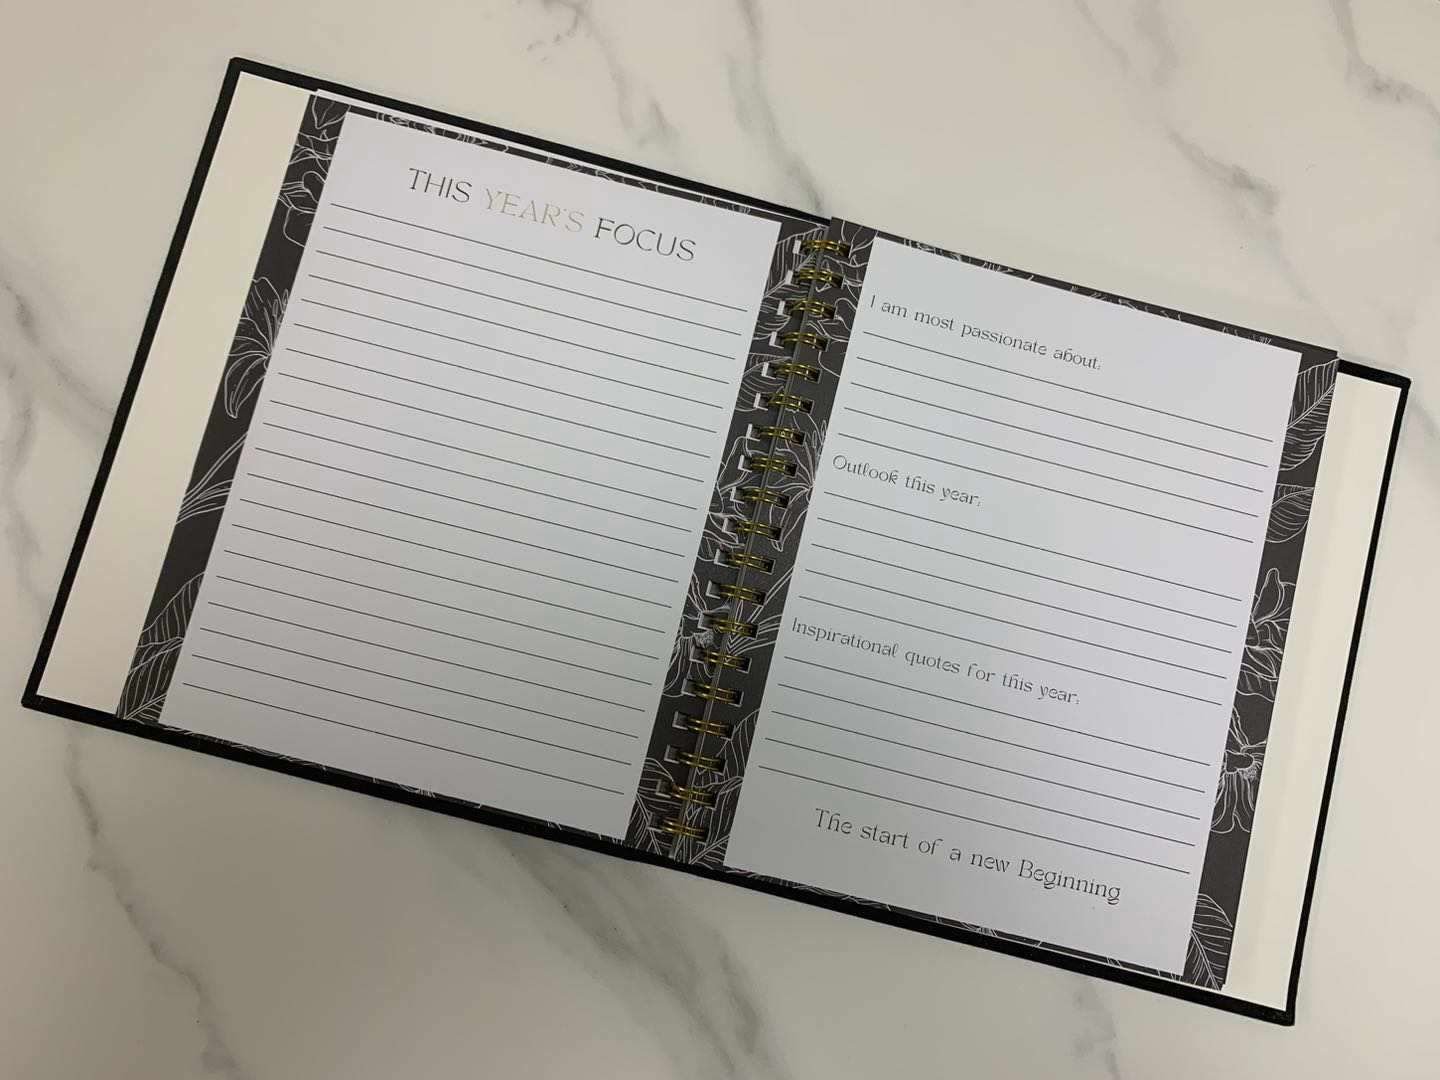 THIS YEAR'S FOCUS
I am most passionate about:
Outlook this year:
Inspirational quotes for this year:
The start of a new Beginning